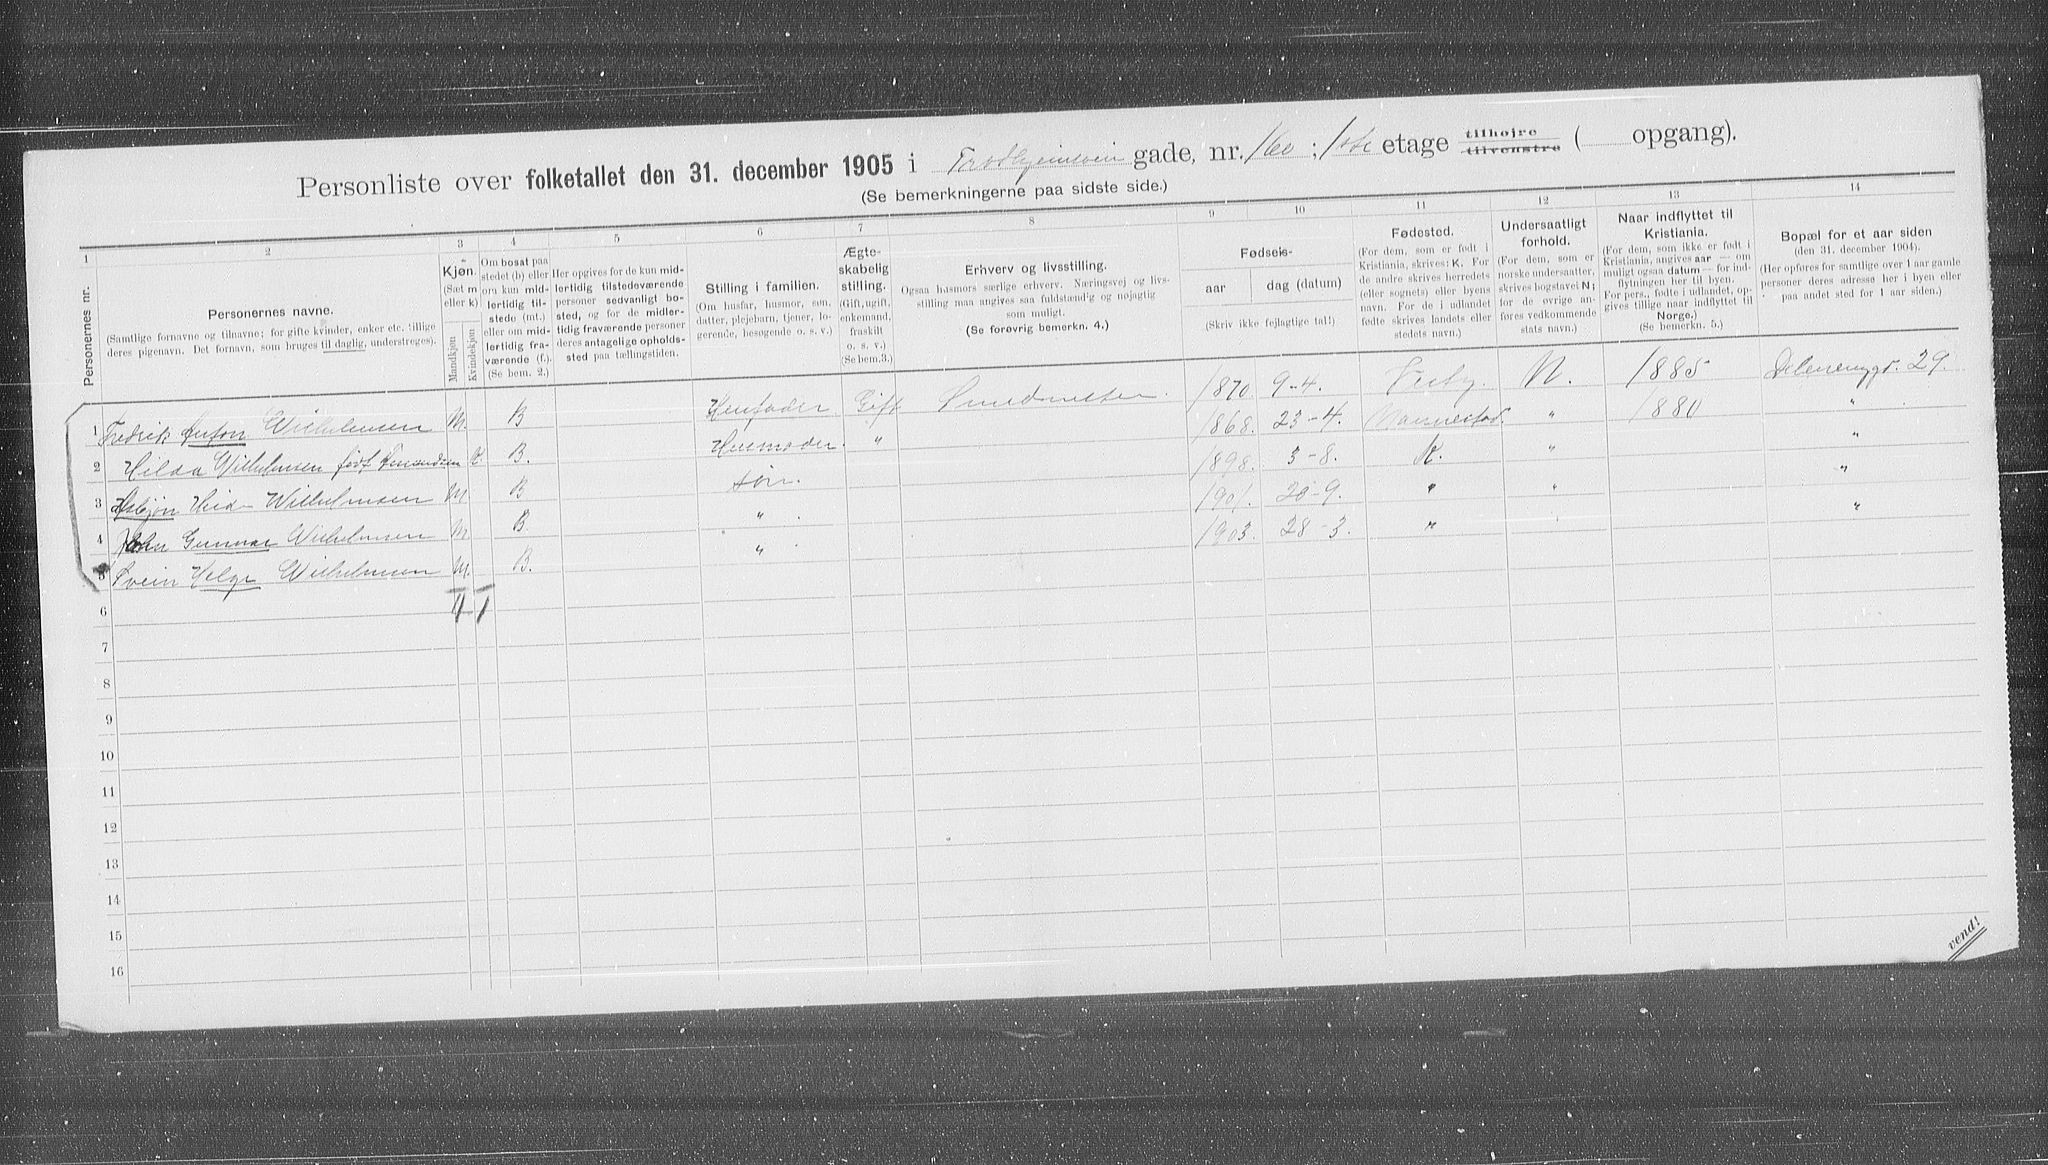 Personliste over folketallet den 31. december 1905 i Trondhjemsvein gade, nr. 16 ; 1ste etage tilhøjre tilvenstre ( opgang).
(Se bemerkningerne paa sidste side.)
1 2 3 4 5 6 7 8 9 10 11 12 13 14
Personernes nr.
Personernes navne.
(Samtlige fornavne og tilnavne; for gifte kvinder, enker etc. tillige
deres pigenavn. Det fornavn, som bruges til daglig, understreges).
Kjøn.
(Sæt m
eller k)
Mandkjøn
Kvindekjøn
Om bosat paa
stedet (b) eller
om kun mid-
lertidig til-
stede (mt.)
eller om mid-
lertidig fra-
værende (f.)
(Se bem. 2.)
Her opgives for de kun mid-
lertidig tilstedeværende
personer sedvanligt bo-
sted, og for de midler-
tidig fraværende personer
deres antagelige opholds-
sted paa tællingstiden.
Stilling i familien.
(Om husfar, husmor, søn,
datter, plejebarn, tjener, lo-
gerende, besøgende o. s. v.)
Ægte-
skabelig
stilling.
(Gift, ugift,
enkemand,
fraskilt
o. s. v.)
(Se bem.3.)
Erhverv og livsstilling.
Ogsaa husmors særlige erhverv. Næringsvej og livs-
stilling maa angives saa fuldstændig og nøjagtig
som muligt.
(Se forøvrig bemerkn. 4.)
Fødsels-
aar dag (datum)
(Skriv ikke fejlagtige tal!)
Fødested.
(For dem, som er født i
Kristiania, skrives: K. For
de andre skrives herredets
(eller sognets) eller byens
navn. For de i udlandet
fødte skrives landets eller
stedets navn.)
Undersaatligt
forhold.
(For dem, som er
norske undersaatter,
skrives bogstavet N;
for de øvrige an-
føres vedkommende
stats navn.)
Naar indflyttet til
Kristiania.
(For dem, som ikke er født i
Kristiania, angives aar — om
muligt ogsaa datum — for ind-
flytningen her til byen.
For pers., fødte i udlandet, op-
gives tillige naar indflyttet til
Norge.)
(Se bemerkn. 5.)
Bopæl for et aar siden
(den 31. december 1904).
(Her opføres for samtlige over 1 aar gamle
personer deres adresse her i byen eller
paa andet sted for 1 aar siden.)
1 Fredrik Anton Wilhelmsen M. B Husfader Gift Smedmester 1870 9-4. N. 1885 29.
2 Hilda Wilhelmsen født K B. Husmoder. " 1868. 23-4. " 1880 "
3 Asbjøn Wilhelmsen M B søn. 1898. 3-8. K. " "
4 John Gunnar Wilhelmsen M B " 1901. 20-9. " " "
5 Svein Helge Wilhelmsen M. B. " 1903. 28-3. " "
6 4 1
7
8
9
10
11
12
13
14
15
16
vend!